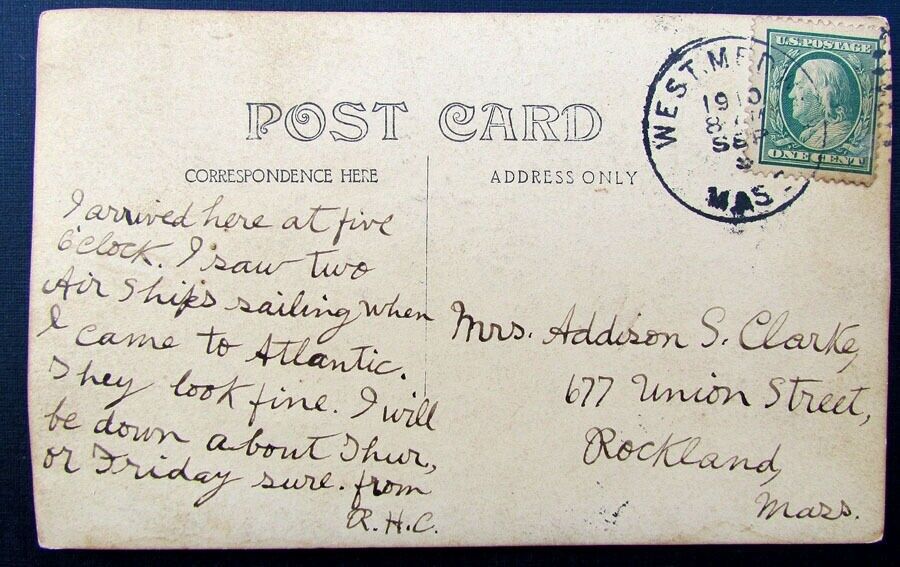 POST CARD
CORRESPONDENCE HERE
ADDRESS ONLY
WEST. MED
1910
SEP
MASS
U.S. POSTAGE
ONE CENT
I arrived here at five
o'clock. I saw two
Air Ships sailing when
I came to Atlantic.
They look fine. I will
be down about Thur,
or Friday sure. from
R.H.C.
Mrs. Addison S. Clarke,
677 Union Street,
Rockland,
Mass.